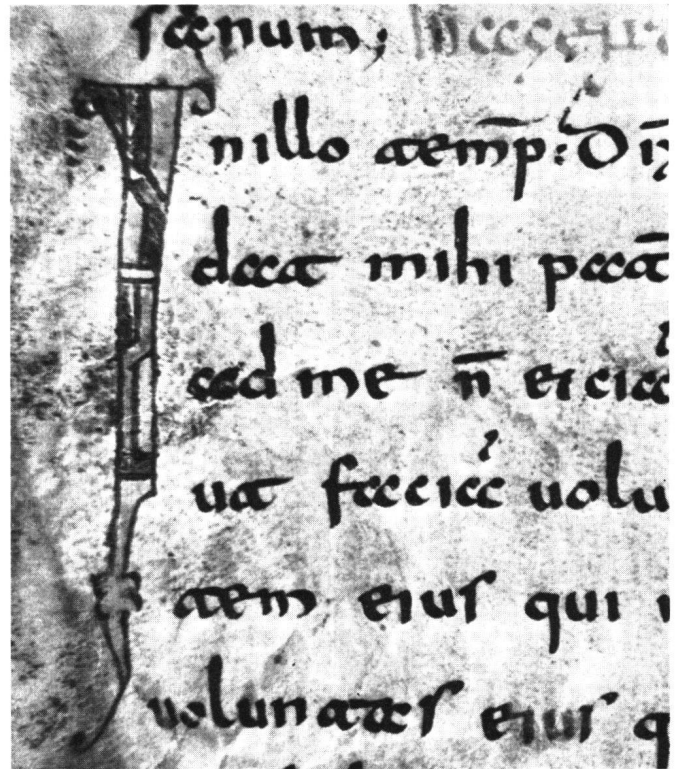 sanum;
Inillo temp̄: Dix̄
dat mihi pat̄
ad me n̄ eicia
ut facia volu
tem eius qui
voluntas eius q